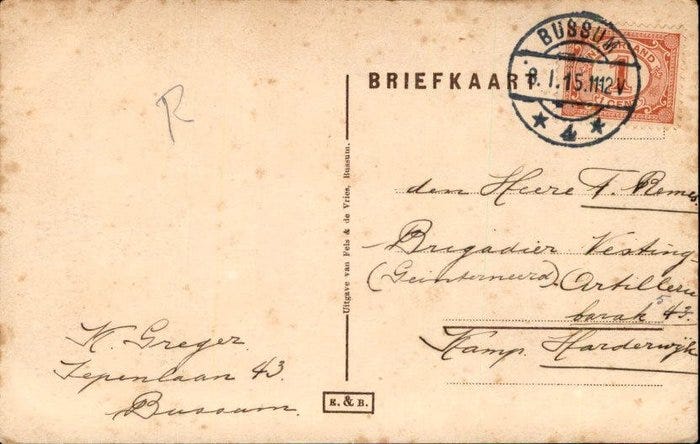 BRIEFKAART
BUSSUM
8.I.15.1112V
4
NEDERLAND
1
CENT
R
den Heere F. Remes
Brigadier Vesting-
(Geinterneerd) Artillerie
barak 5 43.
Kamp Harderwijk
Uitgave van Fels & de Vries, Bussum.
N. Greger
Iepenlaan 43
Bussum.
E. & B.